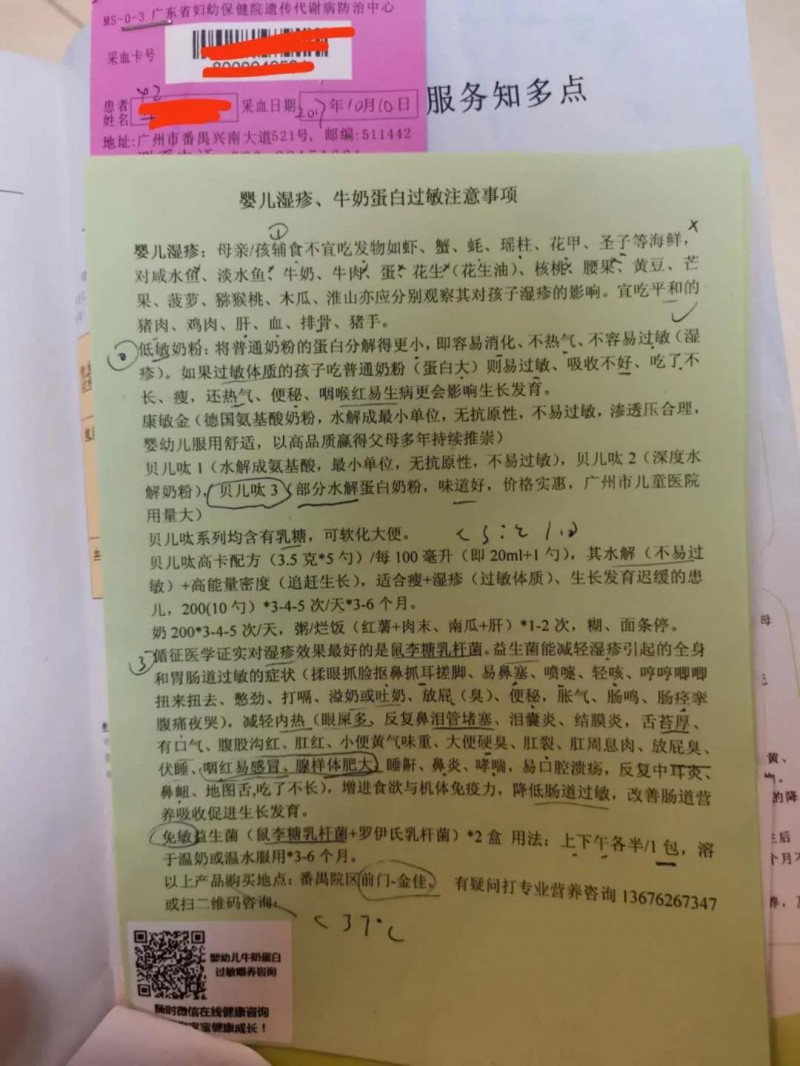 MS-0-3 广东省妇幼保健院遗传代谢病防治中心
采血卡号
患者
姓名
采血日期 2017年10月10日
地址:广州市番禺兴南大道521号, 邮编:511442
服务知多点
婴儿湿疹、牛奶蛋白过敏注意事项
①
x
婴儿湿疹：母亲/孩辅食不宜吃发物如虾、蟹、蚝、瑶柱、花甲、圣子等海鲜，
对咸水鱼、淡水鱼、牛奶、牛肉、蛋、花生（花生油）、核桃、腰果、黄豆、芒
果、菠萝、猕猴桃、木瓜、淮山亦应分别观察其对孩子湿疹的影响。宜吃平和的
猪肉、鸡肉、肝、血、排骨、猪手。
低敏奶粉：将普通奶粉的蛋白分解得更小，即容易消化、不热气、不容易过敏（湿
疹）。如果过敏体质的孩子吃普通奶粉（蛋白大）则易过敏、吸收不好、吃了不
长、瘦，还热气、便秘、咽喉红易生病更会影响生长发育。
康敏金（德国氨基酸奶粉，水解成最小单位，无抗原性，不易过敏，渗透压合理，
婴幼儿服用舒适，以高品质赢得父母多年持续推崇）
贝儿呔 1（水解成氨基酸，最小单位，无抗原性，不易过敏），贝儿呔 2（深度水
解奶粉），贝儿呔 3（部分水解蛋白奶粉，味道好，价格实惠，广州市儿童医院
用量大）
贝儿呔系列均含有乳糖，可软化大便。
贝儿呔高卡配方（3.5 克*5 勺）/每 100 毫升（即 20ml+1 勺），其水解（不易过
敏）+高能量密度（追赶生长），适合瘦+湿疹（过敏体质）、生长发育迟缓的患
儿，200(10 勺）*3-4-5 次/天*3-6 个月。
奶 200*3-4-5 次/天，粥/烂饭（红薯+肉末、南瓜+肝）*1-2 次，糊、面条停。
③循证医学证实对湿疹效果最好的是鼠李糖乳杆菌。益生菌能减轻湿疹引起的全身
和胃肠道过敏的症状（揉眼抓脸抠鼻抓耳搓脚、易鼻塞、喷嚏、轻咳、哼哼唧唧
扭来扭去、憋劲、打嗝、溢奶或吐奶、放屁（臭）、便秘，胀气、肠鸣、肠痉挛
腹痛夜哭），减轻内热（眼屎多、反复鼻泪管堵塞、泪囊炎、结膜炎，舌苔厚、
有口气、腹股沟红、肛红、小便黄气味重、大便硬臭、肛裂、肛周息肉、放屁臭、
伏睡、咽红易感冒、腺样体肥大）睡鼾、鼻炎、哮喘，易口腔溃疡，反复中耳炎、
鼻衄、地图舌,吃了不长），增进食欲与机体免疫力，降低肠道过敏，改善肠道营
养吸收促进生长发育。
免敏益生菌（鼠李糖乳杆菌+罗伊氏乳杆菌）*2 盒 用法：上下午各半/1 包，溶
于温奶或温水服用*3-6 个月。
以上产品购买地点：番禺院区前门-金佳。 有疑问打专业营养咨询 13676267347
或扫二维码咨询：
<37℃
婴幼儿牛奶蛋白
过敏喂养咨询
随时微信在线健康咨询
宝健康成长！